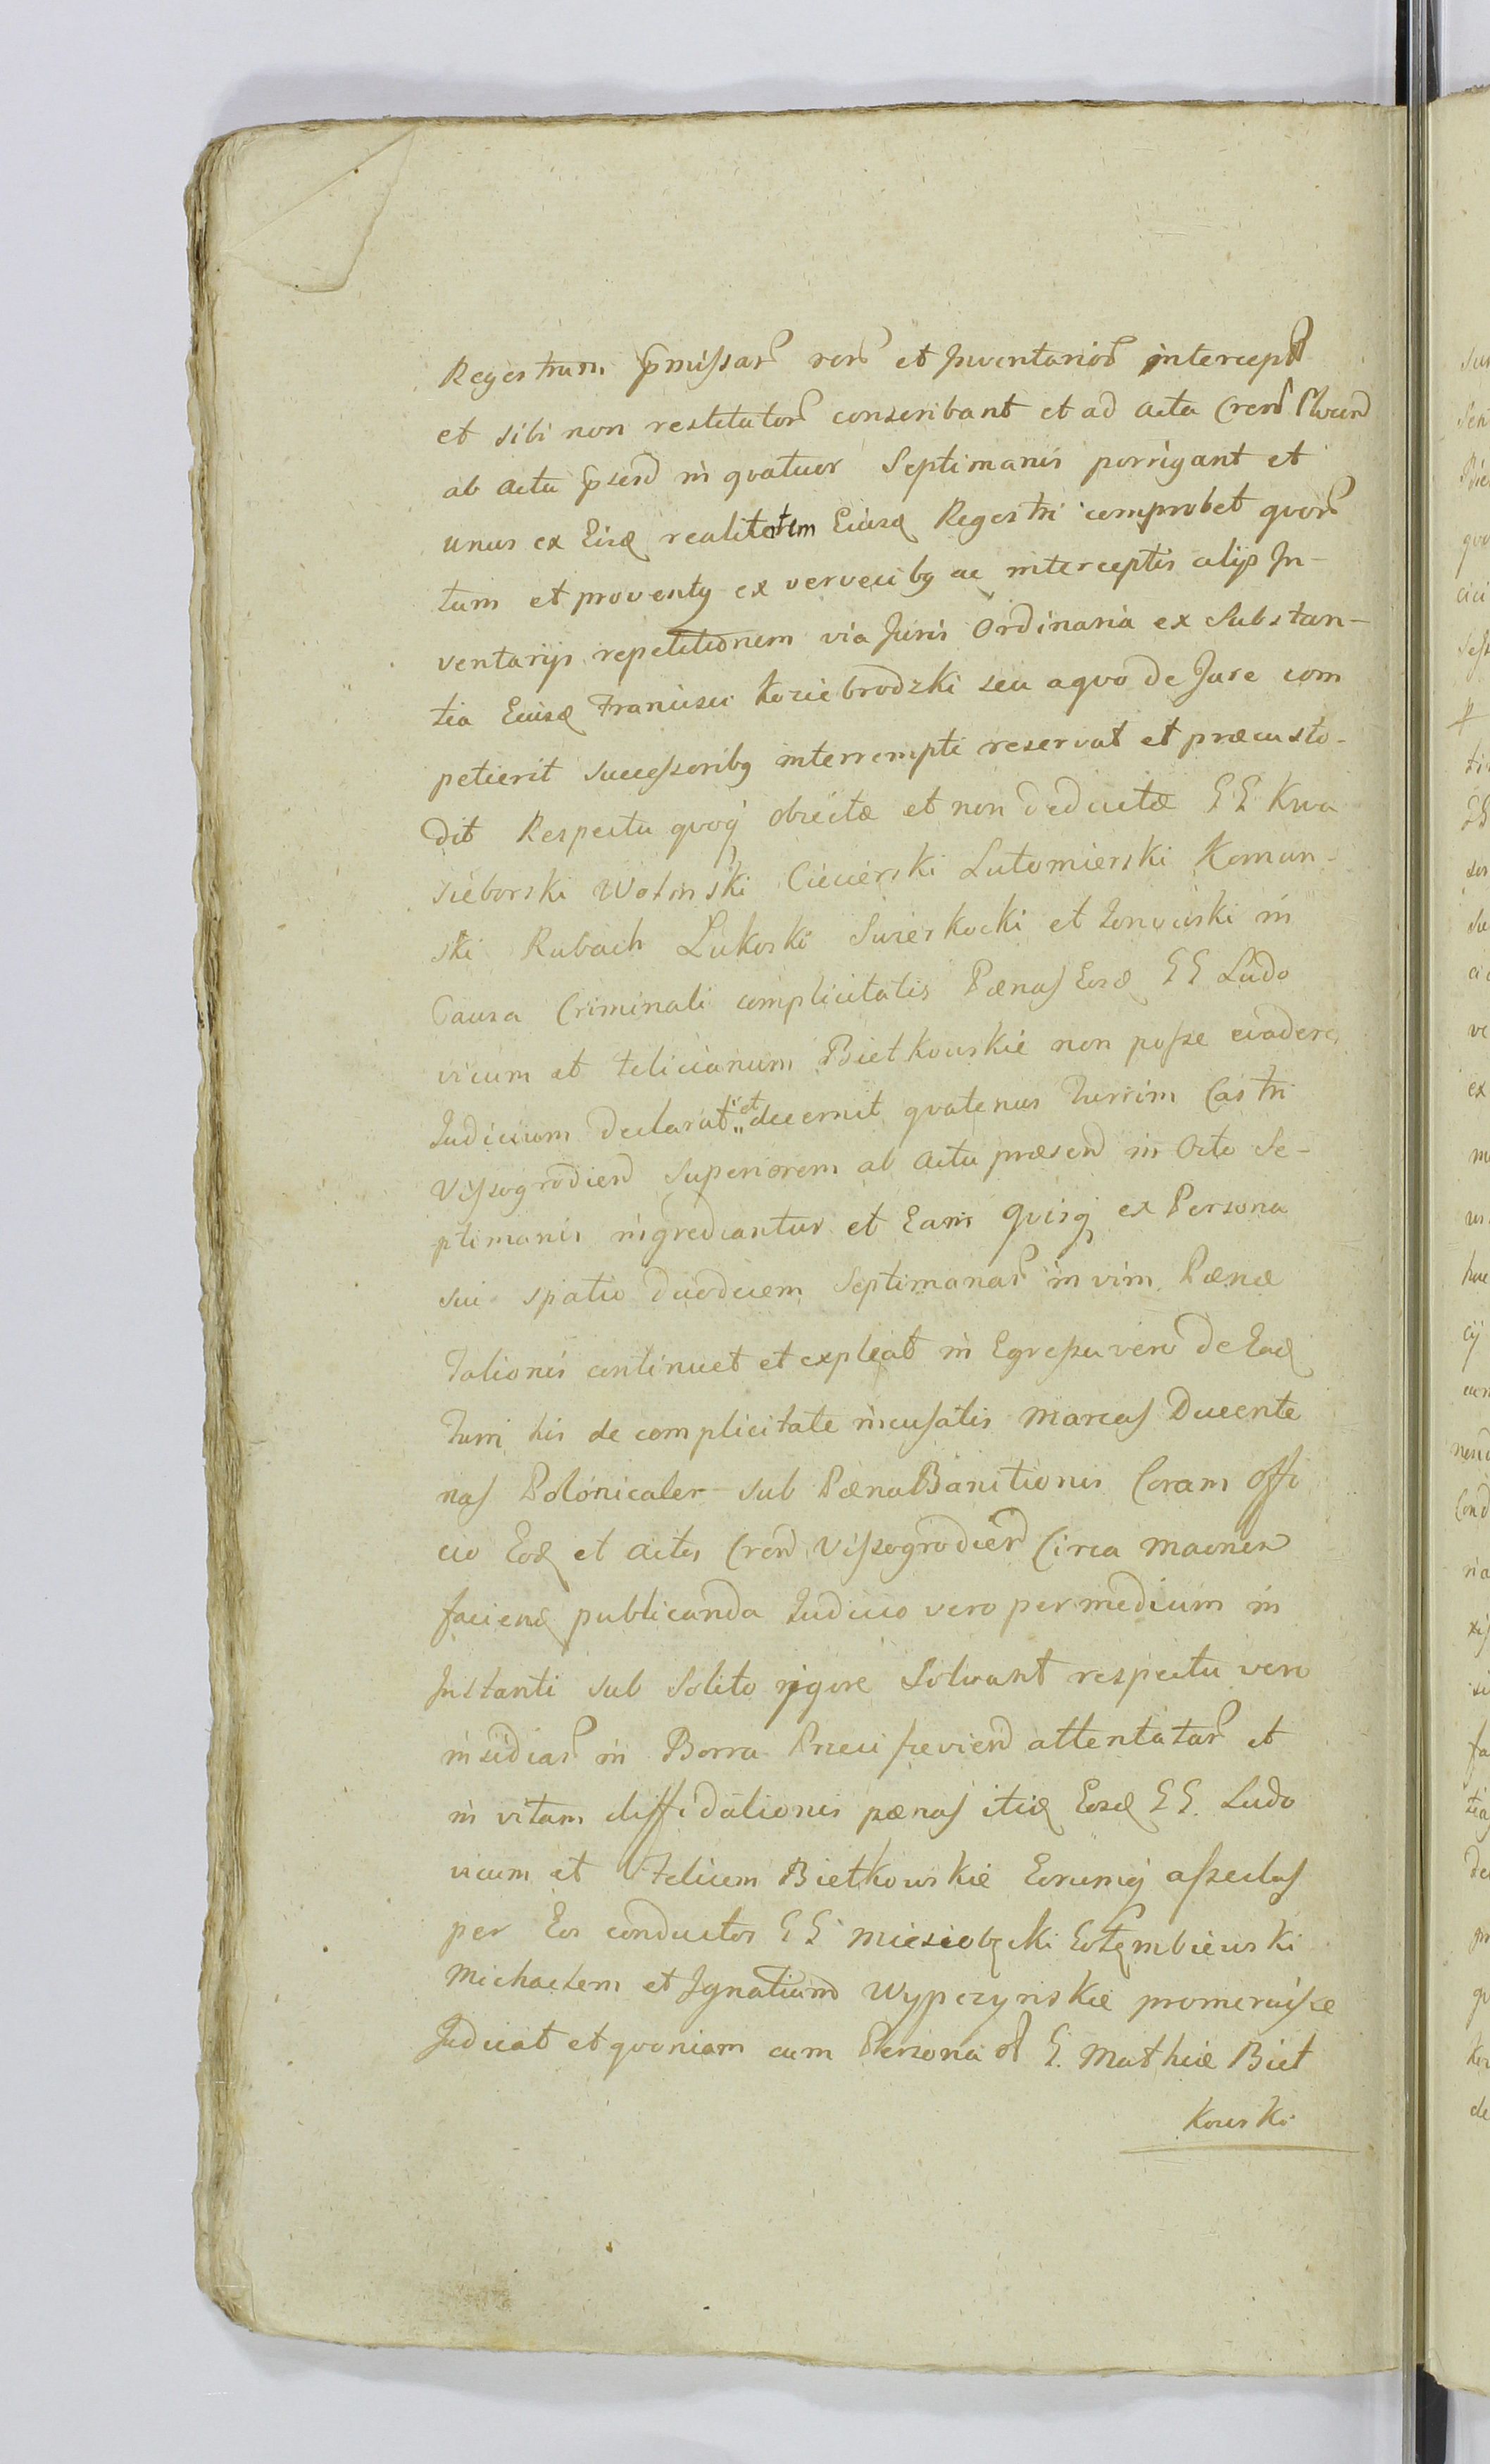 Regestrum pmissar rer et Inventarior intercept
et sibi non restitutor conscribant et ad acta Cren Plocen
ab actu psen in qvatuor Septimanis porrigant et
unus ex Eisd realitatem Eiusd Regestri comprobet qvor
tum et proventq ex vervecibq ac interceptis alijs In-
ventarijs repetitionem via Juris Ordinaria ex Substan-
tia Eiusd Francisci Koziebrodzki seu aqvo de Jure com
petierit successoribq interrempti reservat et præcusto-
dit Respectu qvoq obiectæ et non deductæ GG Kwa
sieborski Wolinski Ciecierski Lutomierski Koman-
ski Rubach Lukoski Swierkocki et in
Causa Criminali complicitatis Pænas Eosd GG Ludo
vicum et Felicianum Bietkowskie non posse evadere,
Iudicium declarat et decernit qvatenus Turrim Castri
Vissogrodien Superiorem ab actu præsen in Octo Se-
ptimanis ingrediantur et Eam qvisq ex Persona
sui spatio duodecem Septimanar in vim Pænæ
Talionis continuet et expleat in Egressu vero de Ead
Turri his de complicitate incusatis Marcas Ducente
nas Polonicales sub Pæna Banitionis Coram Offi
cio Eod et actis Cren Vissogrodien Circa
faciend publicanda Iudicio vero per medium in
Instanti sub Solito rigore Solvant respectu vero
insidiar in Borra attentatar et
in vitam diffidationis pænas itid Eosd GG. Ludo
vicum et Felicem Bietkowskie Eorumq asseclas
per Eos conductos GG
Michaelem et Ignatium Wypczynskie promeruisse
Iudicat et qvoniam cum Persona ol G. Mathiæ Biet
kowski